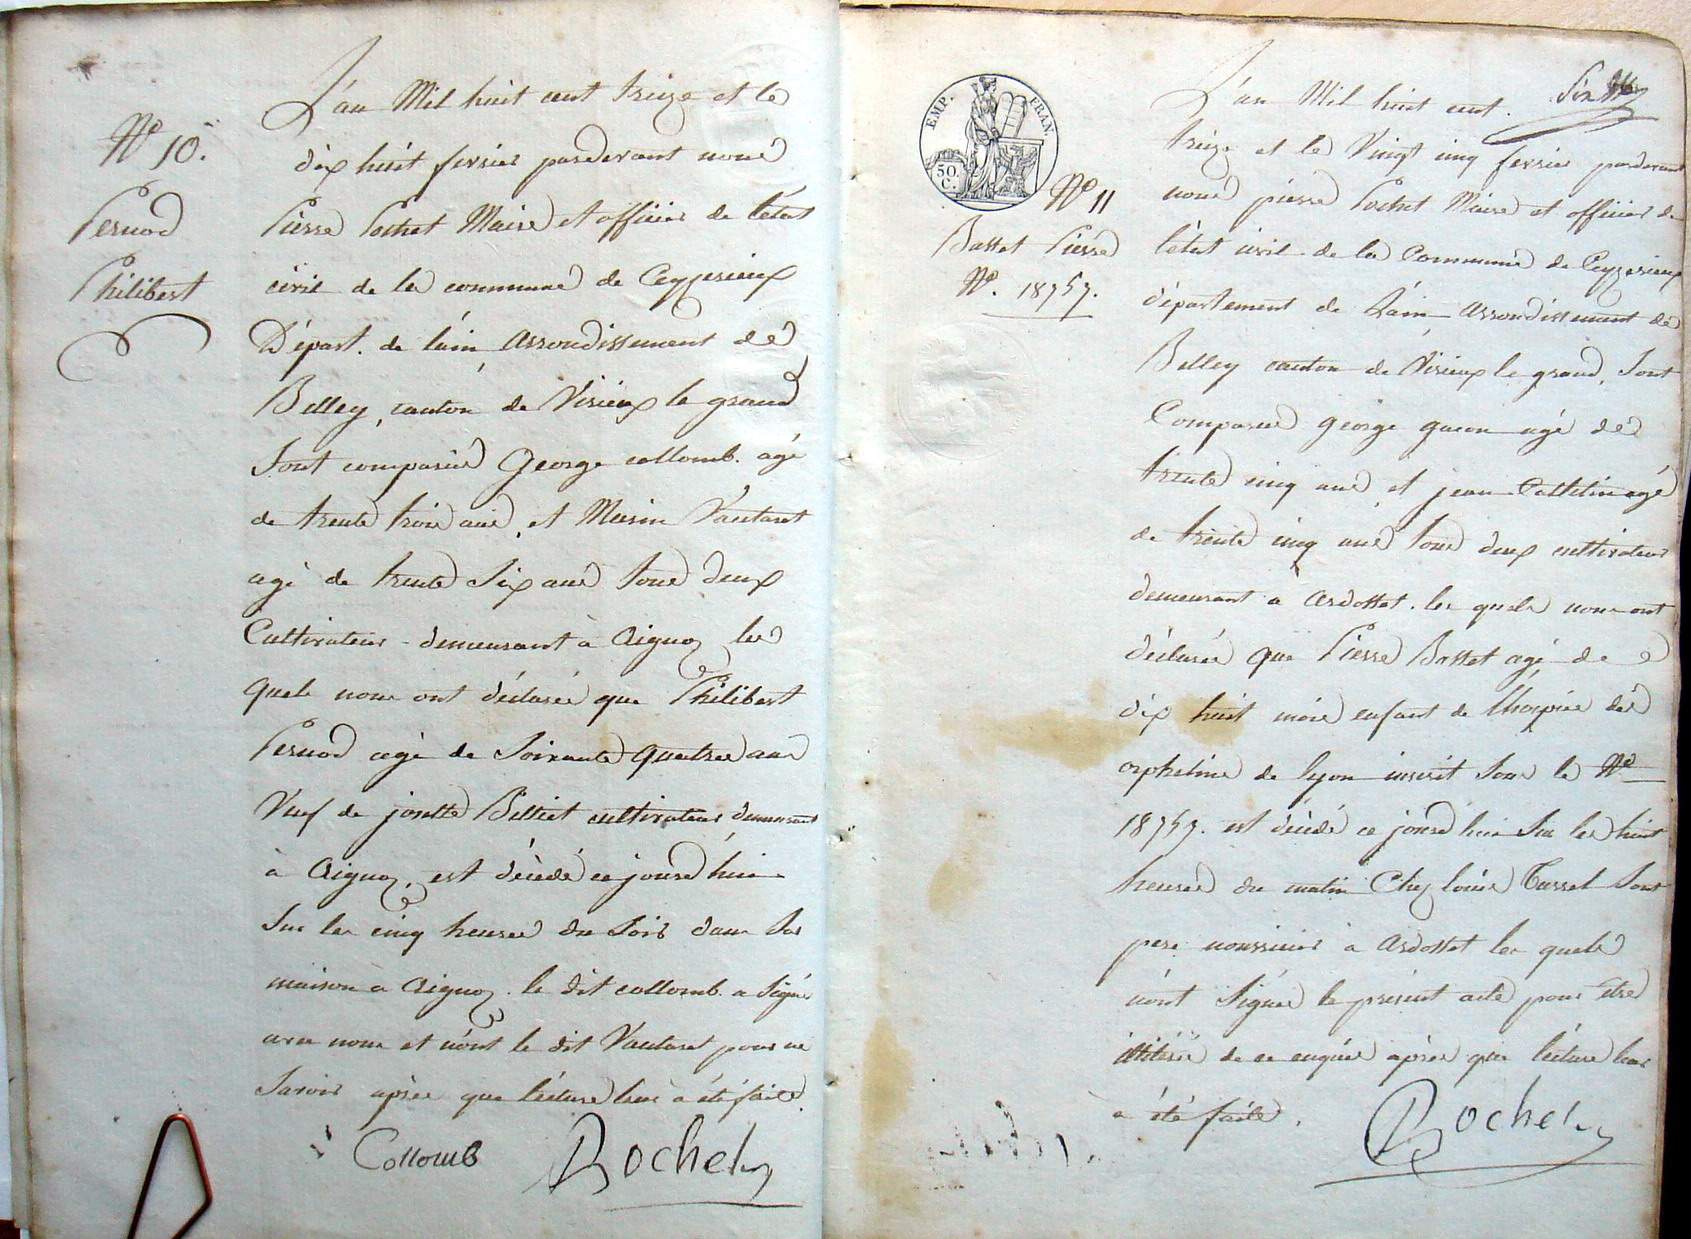 N° 10.
Pernod
Philibert
L'an Mil huit cent treize et le
dix huit fevrier pardevant nous
Pierre Pochet Maire et officier de l'état
civil de la commune de Ceyzerieux
Départ. de l'ain, Arrondissement de
Belley, canton de Virieux le grand
Sont comparus George collomb. agé
de trente trois ans, et Marin Vautaret
agé de trente Six ans tous deux
Cultivateurs demeurant à Aignoz les
quels nous ont déclarés que Philibert
Pernod agé de Soixante quatre ans
Veuf de josette Billiet cultivateur demeurant
à Aignoz, est décédé ce jourd'hui
Sur les cinq heures du Soir dans Sa
maison a Aignoz. le dit collomb a Signé
avec nous et nont le dit Vautaret pour ne
Savoir après que lécture leur à été faite.
Collomb Pochet
EMP. FRAN.
50. C.
Six
N° 11
Bastet Pierre
N°. 18757.
L'an Mil huit cent.
treize et le Vingt cinq fevrier pardevant
nous pierre Pochet Maire et officier de
l'état civil de la Commune de Ceyzerieux
département de Lain Arrondissement de
Belley canton de Virieux le grand, Sont
Comparus george gacon agé de
trente cinq ans et jean Cattelin agé
de trente cinq ans tous deux cultivateurs
demeurant a Ardosset. les quels nous ont
déclarés que Pierre Bastet agé de
dix huit mois enfant de l'hospice des
orphelins de lyon inscrit Sous le N°
18757. est décédé ce jourd'hui Sur les huit
heures du matin Chez louis Curset Sont
pere nourricier a Ardosset les quels
n'ont Signés le présent acte pour être
illitérés de ce enquis après que lécture leur
a été faite.
Pochet